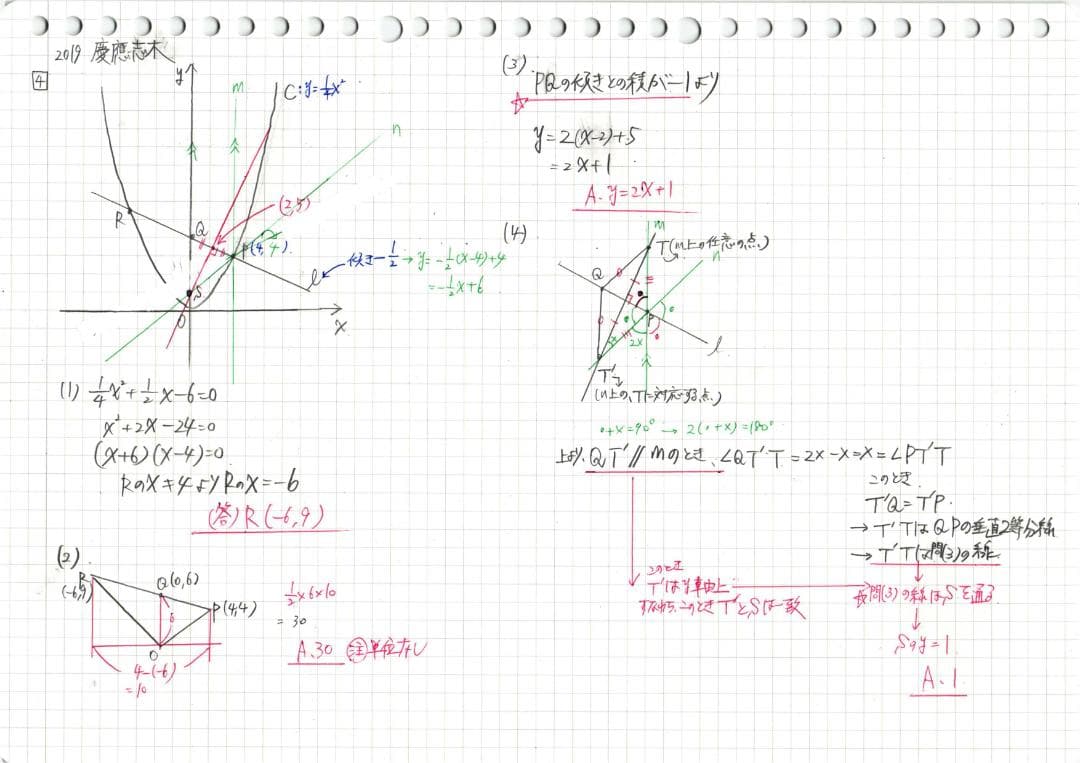 2019 慶應志木
4
y
m
C:y=1/4x²
n
R
Q
(2,5)
P(4,4)
傾き-1/2→y=-1/2(x-4)+4
=-1/2x+6
l
S
O
x
(1) 1/4x²+1/2x-6=0
x²+2x-24=0
(x+6)(x-4)=0
Rのx≠4よりRのx=-6
(答)R(-6,9)
(2)
R
(-6,9)
Q(0,6)
P(4,4)
6
O
4-(-6)
=10
1/2×6×10
=30
A.30 注単位ナシ
(3)
PQの傾きとの積が-1より
y=2(x-2)+5
=2x+1
A.y=2x+1
(4)
m
T(m上の任意の点)
n
Q
P
x
2x
l
T'
(n上の、Tに対応する点)
∘+x=90°→2(∘+x)=180°
上より、QT'//mのとき、∠QT'T=2x-x=x=∠PT'T
このとき
T'Q=T'P.
→T'TはQPの垂直2等分線
→T'Tは問(3)の線
このとき
T'はy軸上
すなわち、このときT'とSは一致
問(3)の線は、Sを通る
Sのy=1
A.1